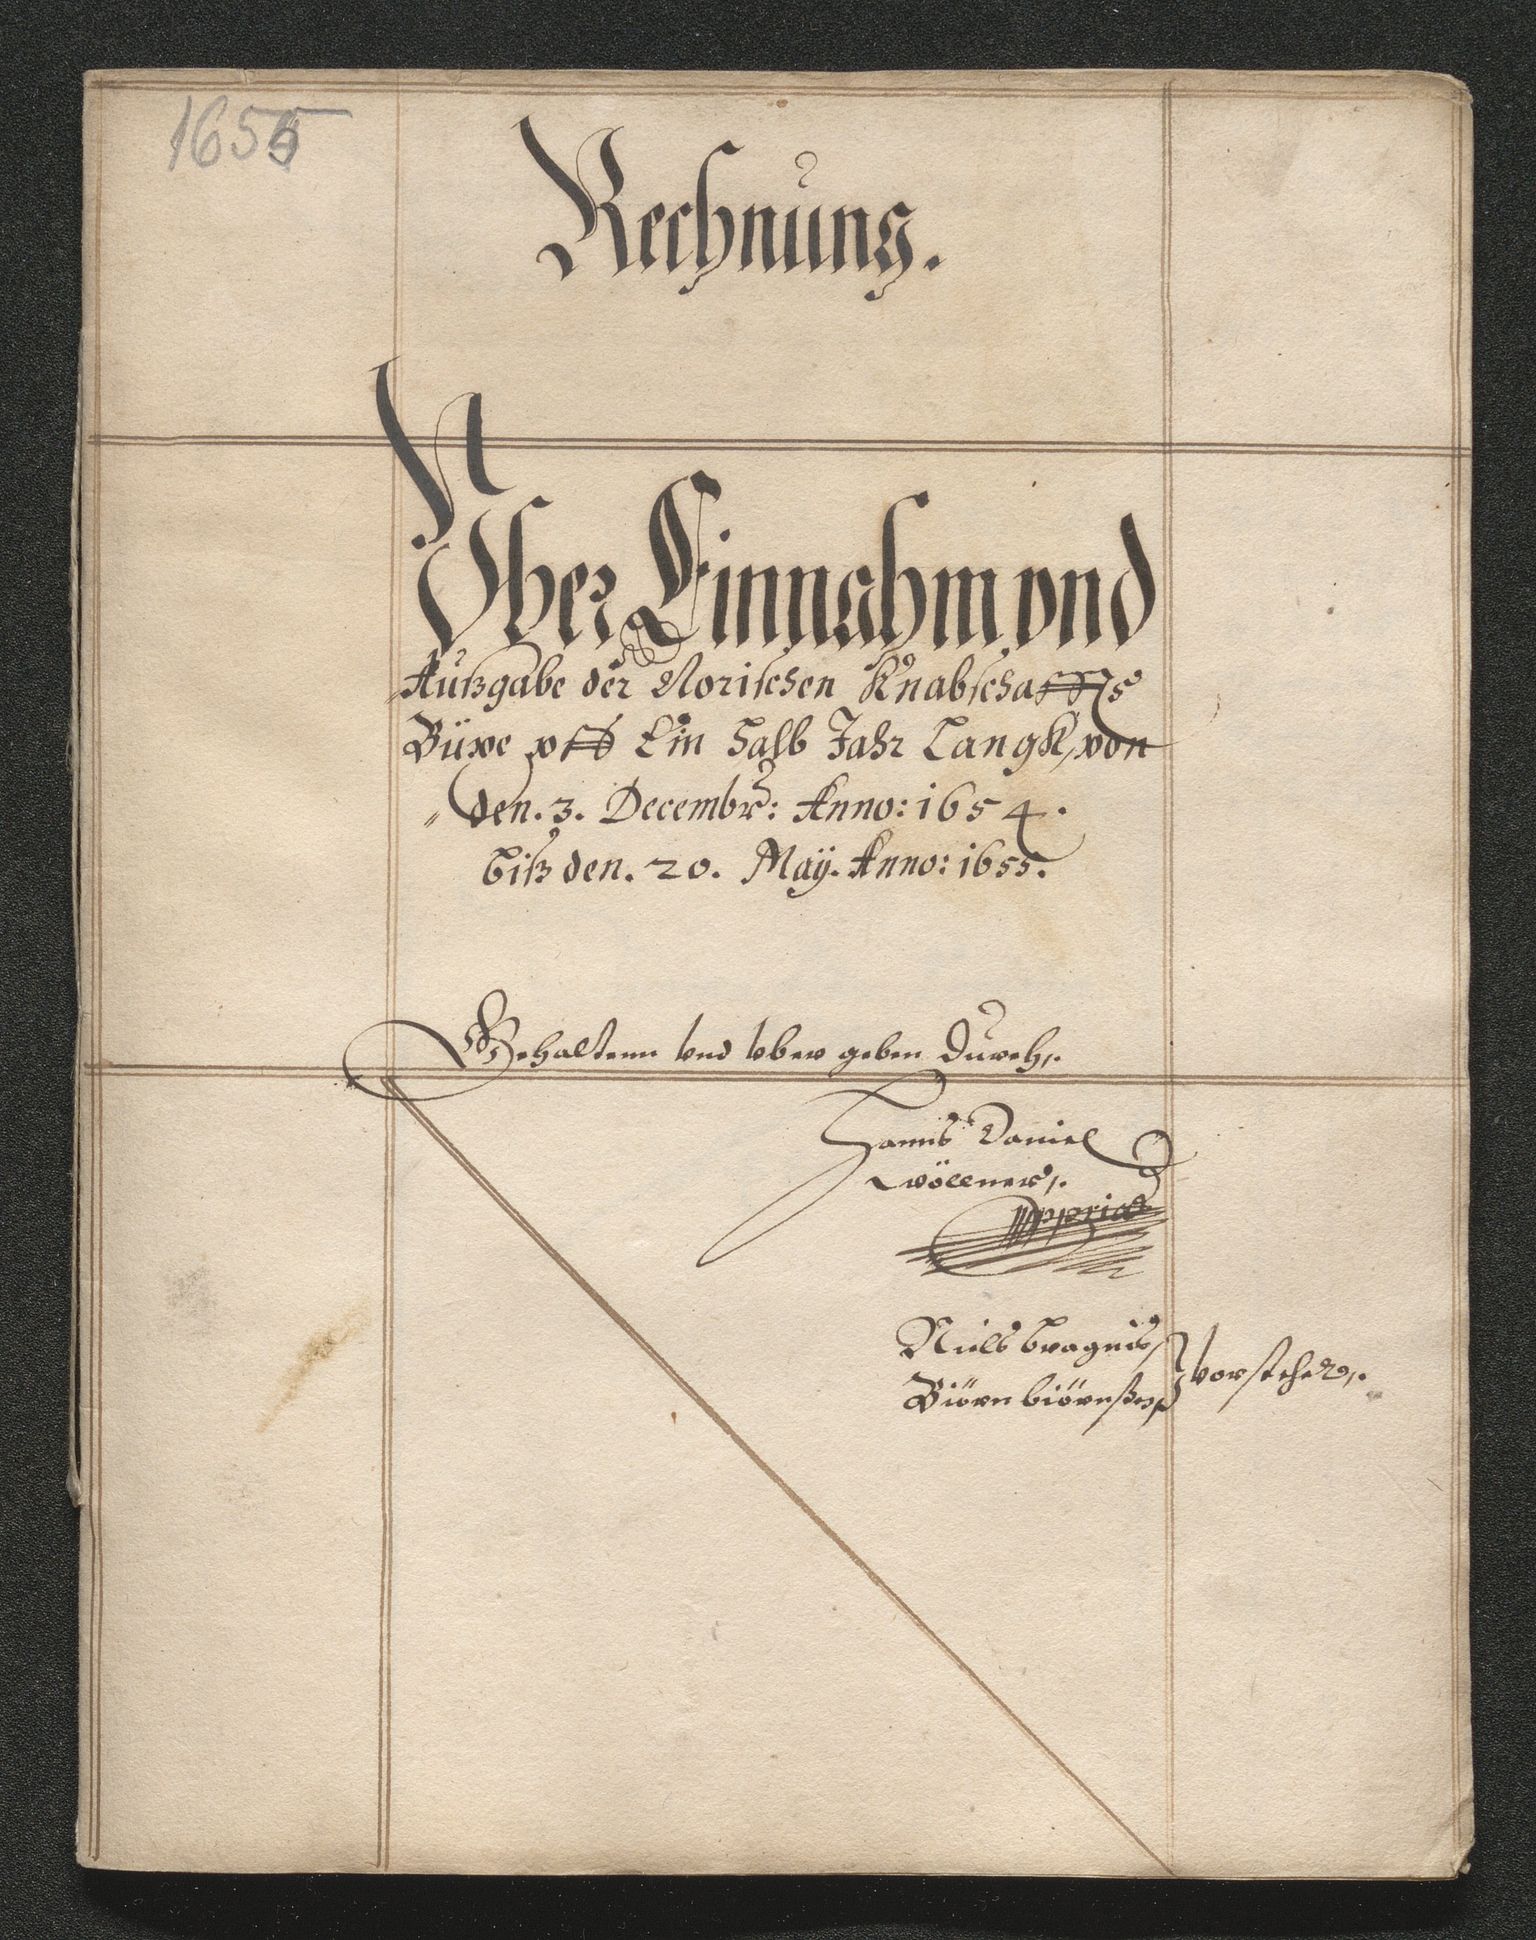 1655
Rechnung.
Vber Einnahm vnd
Außgabe der Norischen Knabschaffts
Büxe vff Ein halb Jahr Langk, von
den. 3. Decembr: Anno: 1654.
biß den. 20. Maÿ. Anno: 1655.
Gehaltenn vnd vber geben Durch,.
Hanns Daniel
wöllner,.
Mppria
Niels bragnis
Biörn biörnßen
vorsteher,.